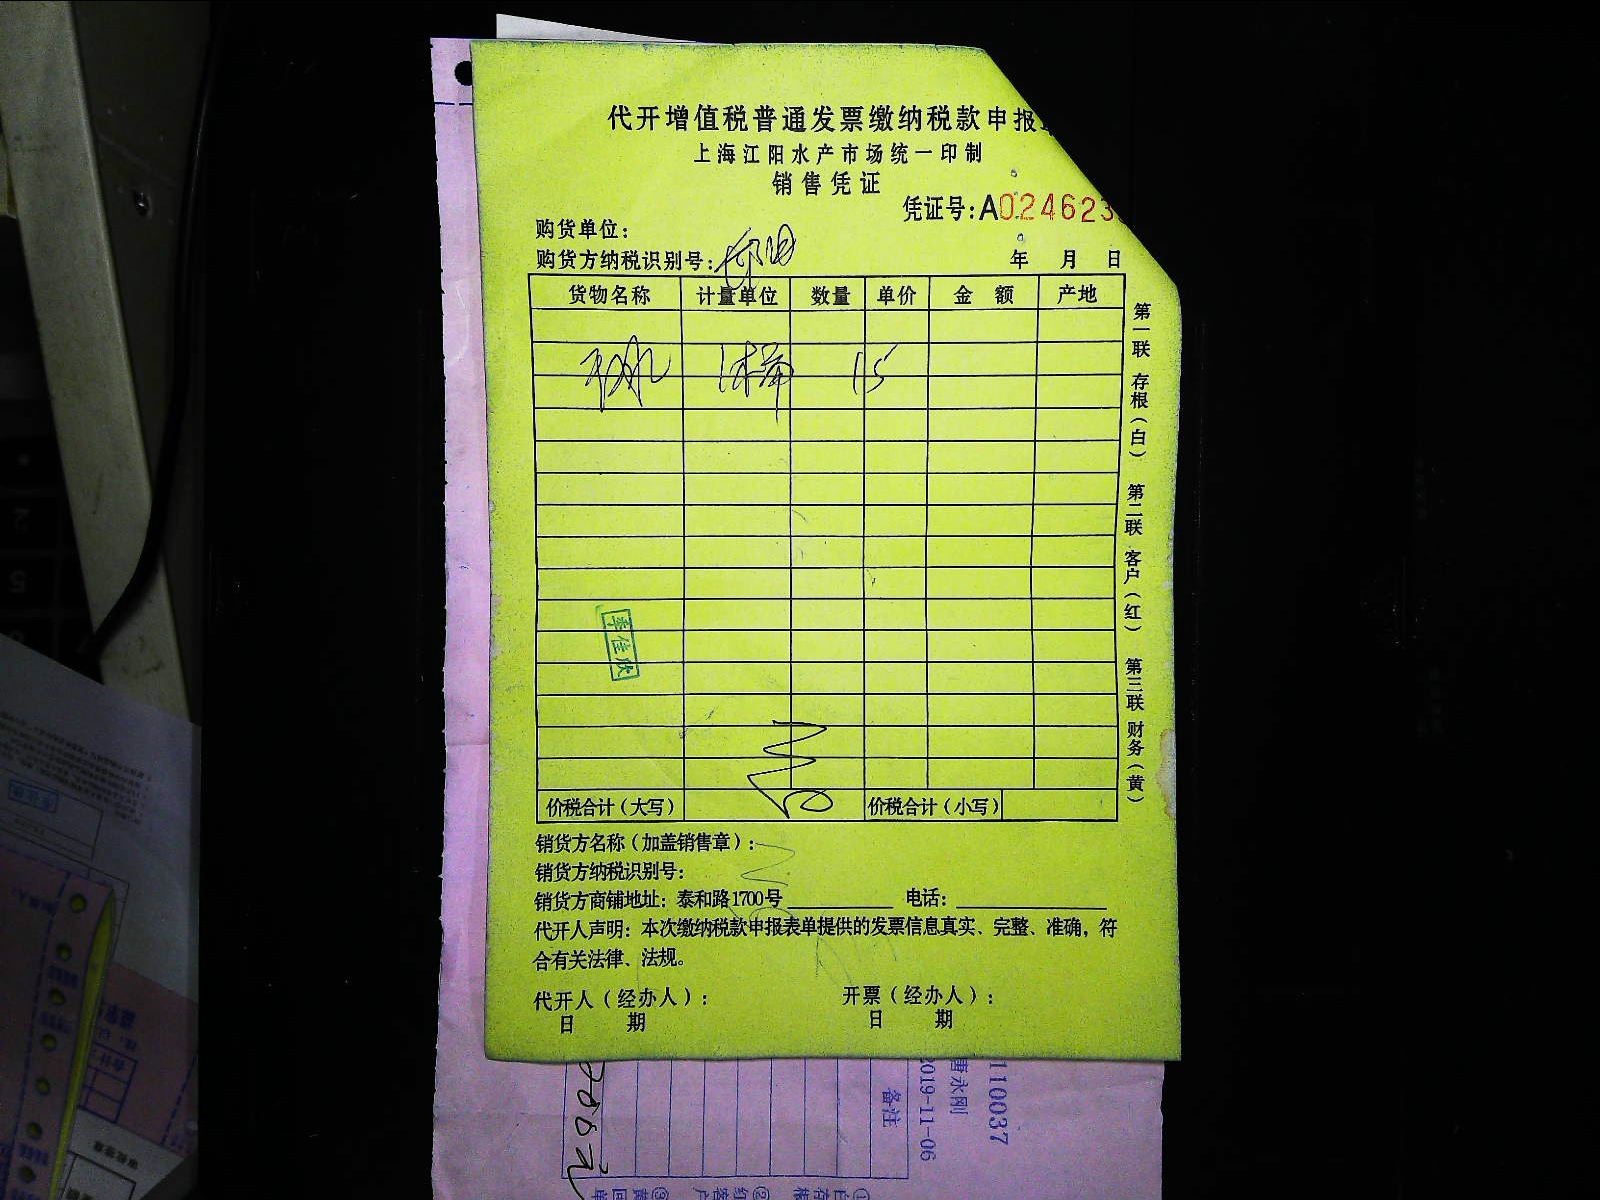 代开增值税普通发票缴纳税款申报
上海江阳水产市场统一印制
销售凭证
凭证号:A024623
购货单位:
购货方纳税识别号:
年 月 日
货物名称 计量单位 数量 单价 金额 产地
15
第一联 存根(白) 第二联 客户(红) 第三联 财务(黄)
季佳欣
价税合计(大写) 价税合计(小写)
销货方名称(加盖销售章):
销货方纳税识别号:
销货方商铺地址: 泰和路1700号 电话:
代开人声明: 本次缴纳税款申报表单提供的发票信息真实、完整、准确, 符
合有关法律、法规。
代开人(经办人): 开票(经办人):
日 期 日 期
110037
唐永刚
2019-11-06
备注